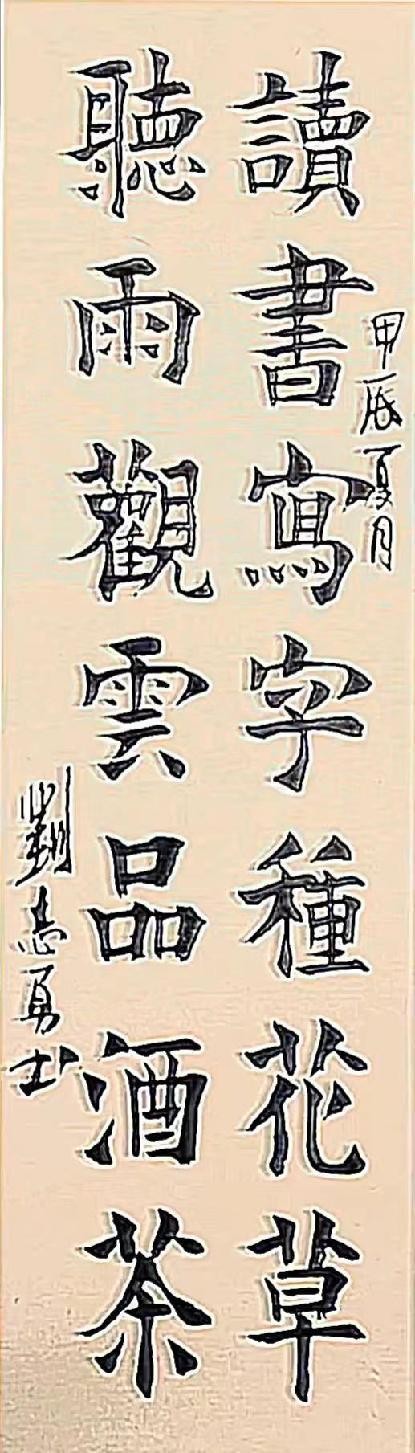 甲辰夏月
讀書寫字種花草
聽雨觀雲品酒茶
劉志勇书